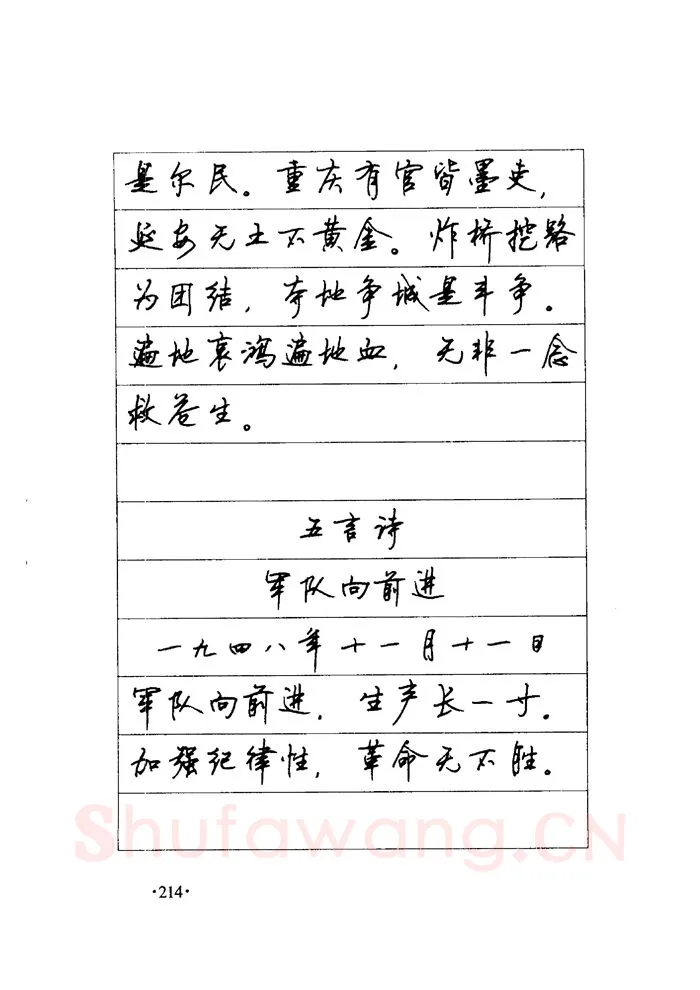 是尔民。重庆有官皆墨吏，
延安无土不黄金。炸桥挖路
为团结，夺地争城是斗争。
遍地哀鸿遍地血，无非一念
救苍生。
五言诗
军队向前进
一九四八年十一月十一日
军队向前进，生产长一寸。
加强纪律性，革命无不胜。
Shufawang.CN
·214·